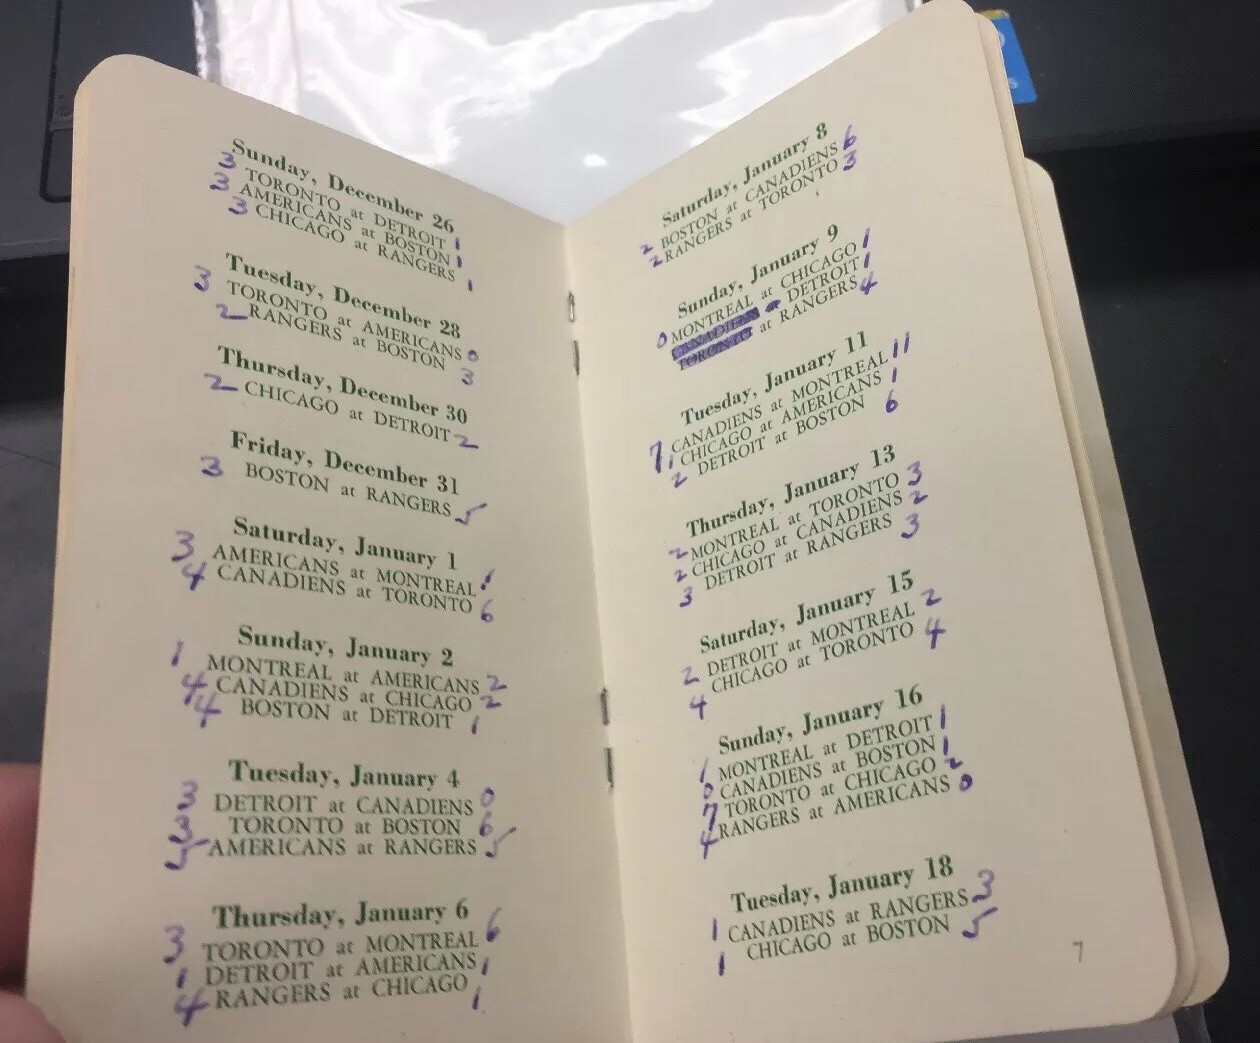 Sunday, December 26
3 TORONTO at DETROIT 1
3 AMERICANS at BOSTON 1
3 CHICAGO at RANGERS 1
Tuesday, December 28
3 TORONTO at AMERICANS 0
2 RANGERS at BOSTON 3
Thursday, December 30
2 CHICAGO at DETROIT 2
Friday, December 31
3 BOSTON at RANGERS 5
Saturday, January 1
3 AMERICANS at MONTREAL 1
4 CANADIENS at TORONTO 6
Sunday, January 2
1 MONTREAL at AMERICANS 2
4 CANADIENS at CHICAGO 2
4 BOSTON at DETROIT 1
Tuesday, January 4
3 DETROIT at CANADIENS 0
3 TORONTO at BOSTON 6
5 AMERICANS at RANGERS 5
Thursday, January 6
3 TORONTO at MONTREAL 6
1 DETROIT at AMERICANS 1
4 RANGERS at CHICAGO 1
Saturday, January 8
2 BOSTON at CANADIENS 6
2 RANGERS at TORONTO 3
Sunday, January 9
0 MONTREAL at CHICAGO 1
CANADIENS at DETROIT 1
TORONTO at RANGERS 4
Tuesday, January 11
7 CANADIENS at MONTREAL 11
1 CHICAGO at AMERICANS 1
2 DETROIT at BOSTON 6
Thursday, January 13
2 MONTREAL at TORONTO 3
2 CHICAGO at CANADIENS 2
3 DETROIT at RANGERS 3
Saturday, January 15
2 DETROIT at MONTREAL 2
4 CHICAGO at TORONTO 4
Sunday, January 16
1 MONTREAL at DETROIT 1
0 CANADIENS at BOSTON 1
7 TORONTO at CHICAGO 2
4 RANGERS at AMERICANS 0
Tuesday, January 18
1 CANADIENS at RANGERS 3
1 CHICAGO at BOSTON 5
7